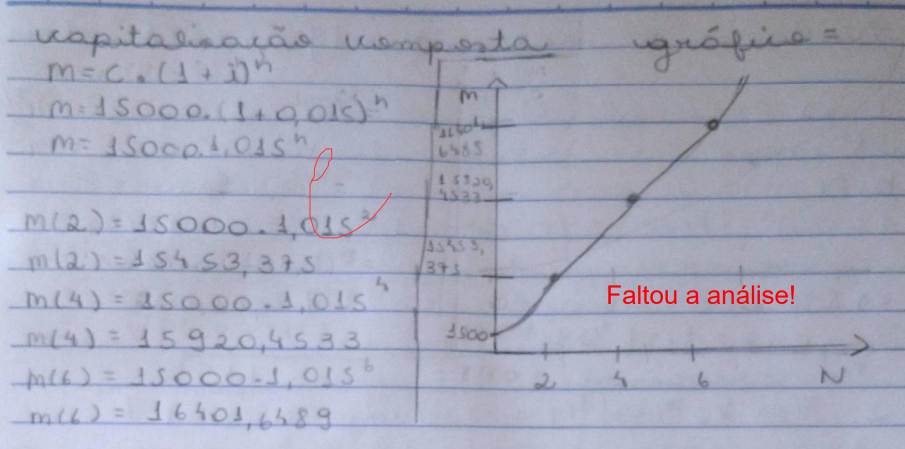 capitalização composta gráfico =
m = C . (1 + i)^n
m = 15000 . (1 + 0,015)^n
m = 15000 . 1,015^n
m(2) = 15000 . 1,015^2
m(2) = 15453,375
m(4) = 15000 . 1,015^4
m(4) = 15920,4533
m(6) = 15000 . 1,015^6
m(6) = 16401,6489
m
16401
6485
15920,
4533
15453,
375
1500
2 4 6 N
Faltou a análise!